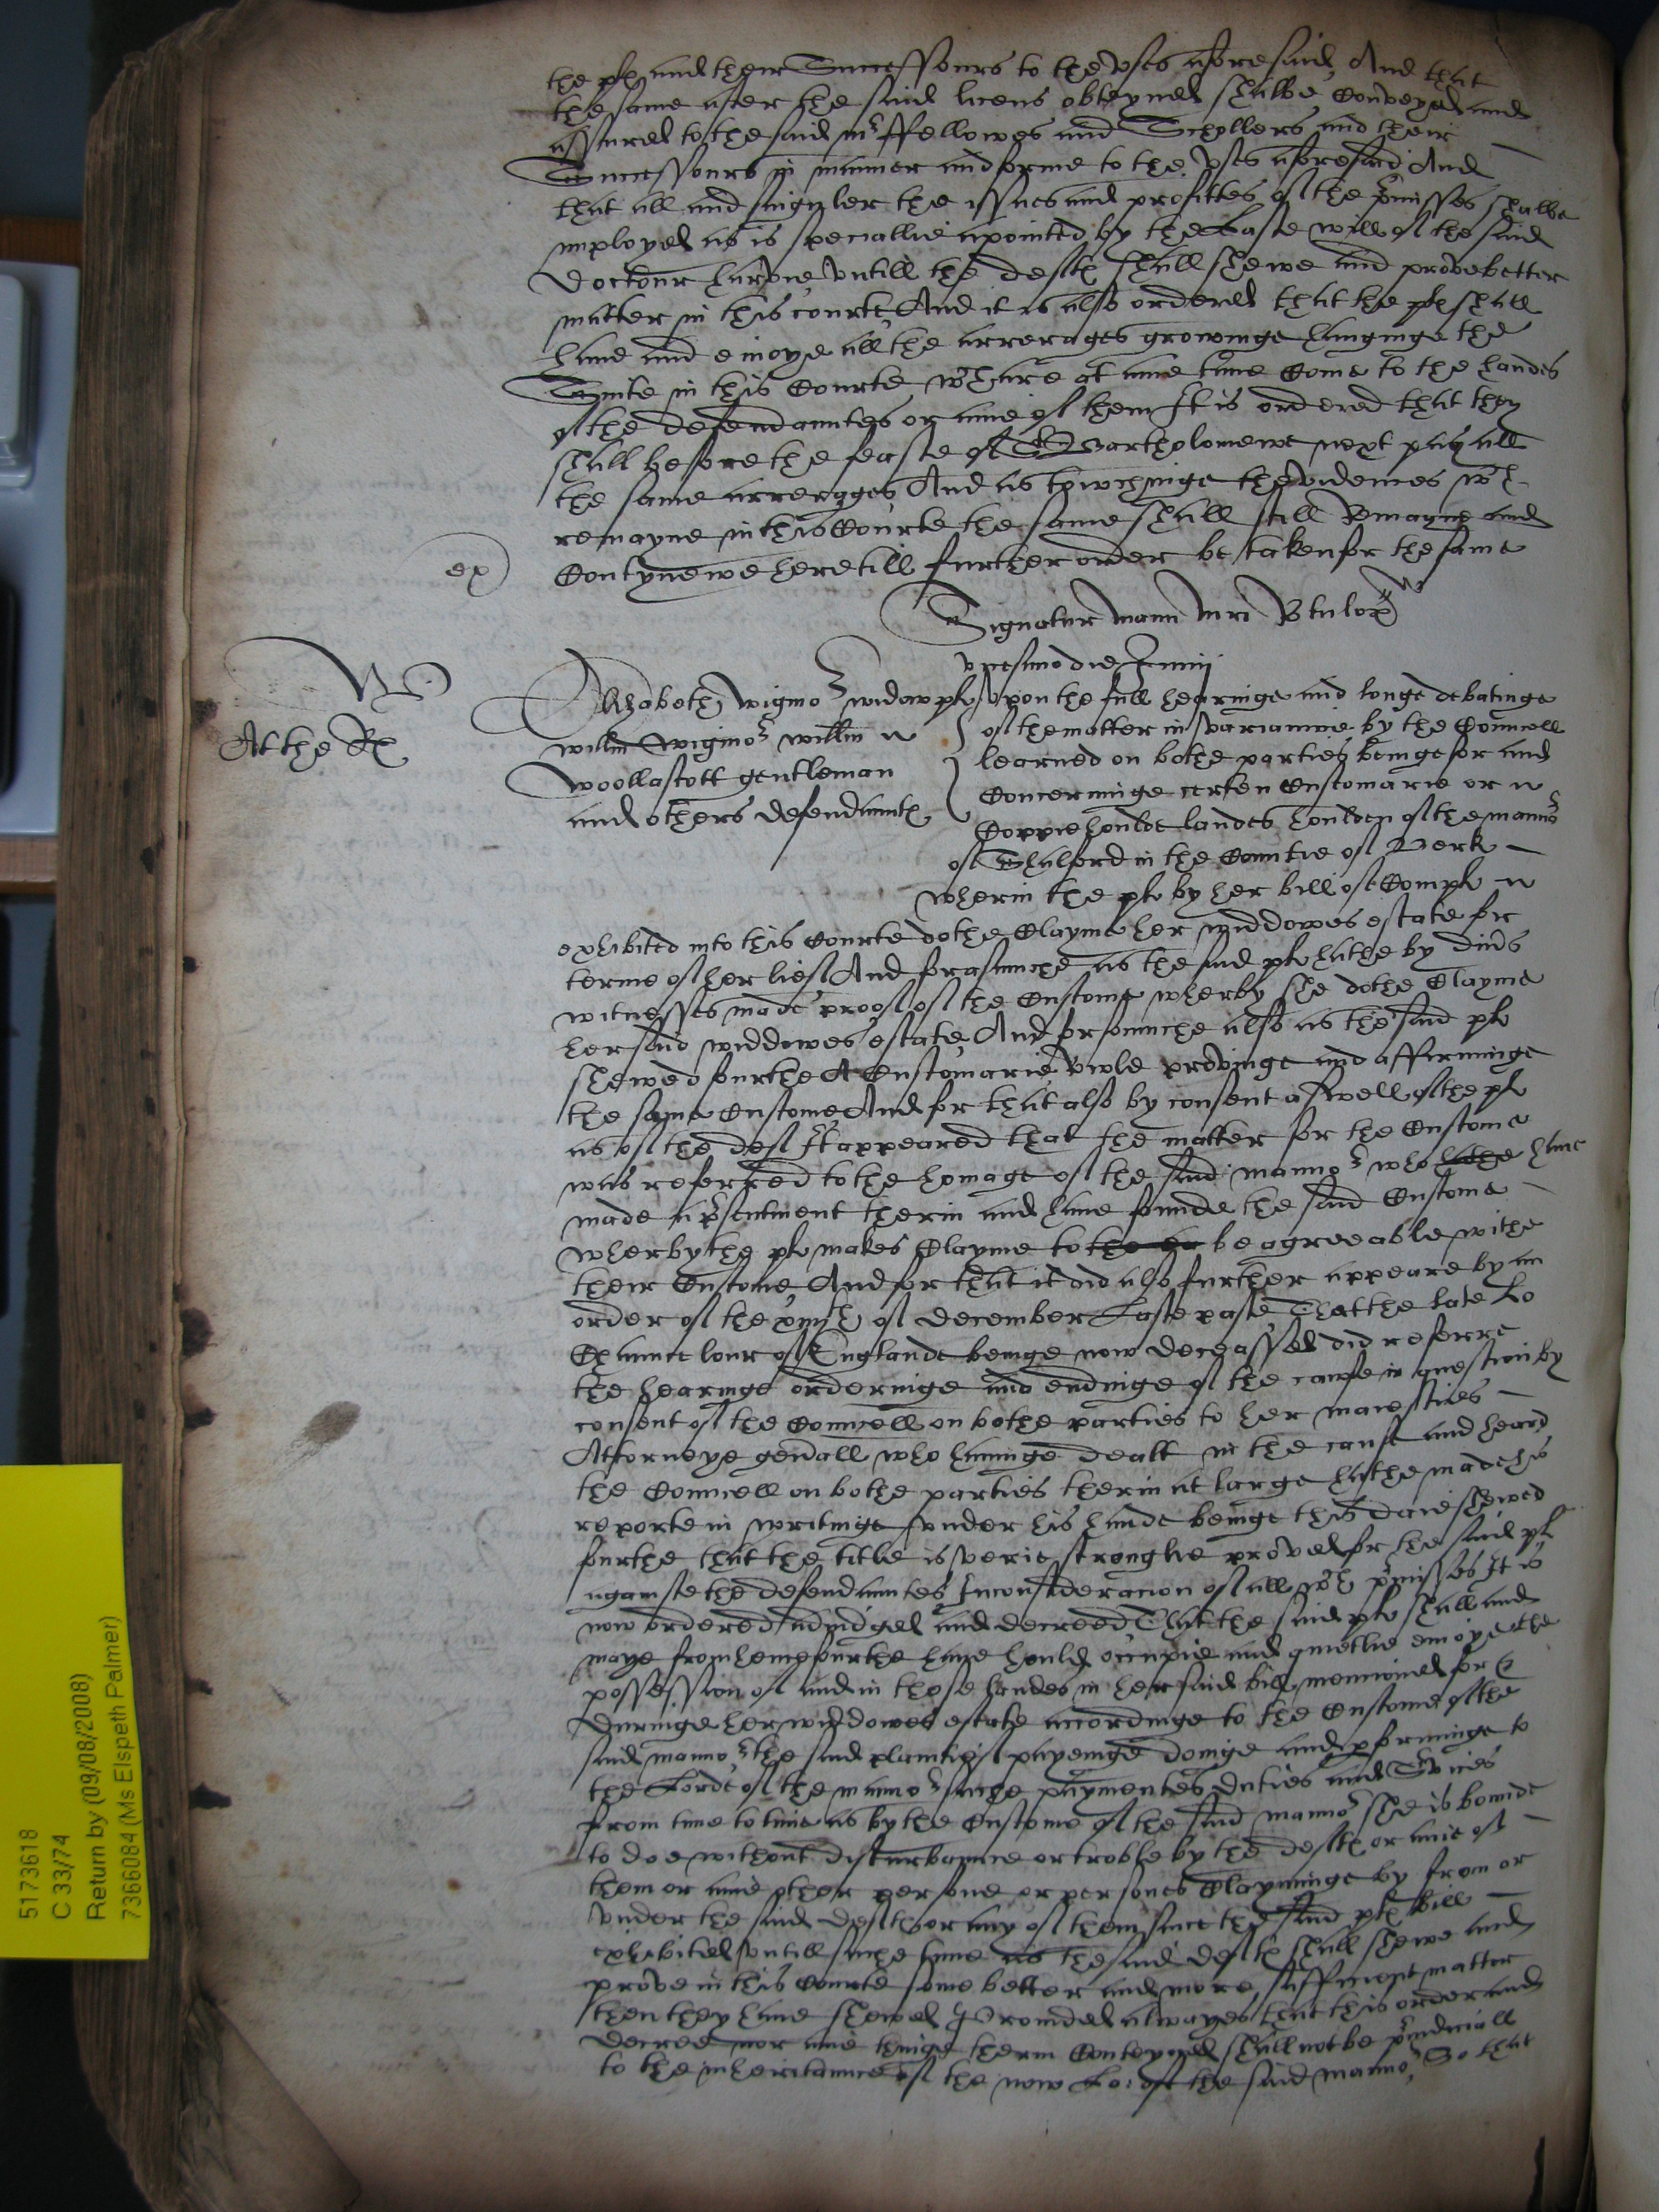 the plt and their Successours to the vses aforesaid, And that
the same after the said licens obteyned shalbe Conveyed and
assured to the said mr ffellowes and Schollers and their
Successours in manner and forme to the vses aforesaid And
that all and singuler the issues and profittes of the pmisses shalbe
imployed as is speciallie apointed by the Laste will of the said
Doctour harvie, vntill the deftes shall shewe and prove better
matter in this courte, And it is also ordered that the plt shall
have and enioye all the arrerages growinge hanginge the
Suite in this Courte, wch are at anie time Come to the handes
of the defendauntes or anie of them It is ordered that they
shall before the feaste of St Bartholomewe next pay all
the same arrerages And as towchinge thevidences wch
remayne in this Courte the same shall still Remayne and
ex) Contynewe here till further order be taken for the same
Signatur manu mri Rtulor
vicesimo die Junij
W
At the R
Elizabeth wigmor widow plt vpon the full hearinge and longe debatinge
willm wigmor willm } of the matter in variaunce by the Councell
woollascott gentleman } learned on bothe parties beinge for and
and others defendauntes } Concerninge certen Customarie or
Coppiehoulde landes houlden of the mannor
of Shalford in the Countie of Berk
wherin the plt by her bill of Complt
exhibited into this Courte dothe Clayme her widdowes estate for
terme of her lief And forasmuche as the said plt hathe by divs
witnesses made proof of the Custome wherby she dothe Clayme
her said widdowes estate, And forsomuche also as the said plt
shewed fourthe A Customarie rwle provinge and affirminge
the same Custome And for that also by consent aswell of the plt
as of the deft It appeared that the matter for the Custome
was referred to the homage of the said mannor who hathe have
made a psentment therin and have founde the said Custome
wherby the plt makes Clayme to the be agreeable withe
their Custome, And for that it did also further appeare by an
order of the of December Laste paste, That the late Lo
Chauncelour of Englande beinge now deceassed did referre
the hearinge orderinge and endinge of the cause in question by
consent of the Councell on bothe parties to her maiesties
Attorneye genall who havinge dealt in the cause and heard
the Councell on bothe parties therin at large hathe made his
reporte in writinge vnder his hande beinge this daie shewed
fourthe that the title is verie stronglie proved for the said plt
againste the defendauntes In consideracion of all wch pmisses It is
now ordered adiudged and decreed That the said plt shall and
maye from hencefourthe have hould occupie and quietlie enioye the
possession of and in those landes in her said bill mencioned for &
duringe her widdowes estate accordinge to the Custome of the
said mannor the said plaintief payeinge doinge and pforminge to
the Lorde of the mannor suche paymentes duties and Svices
from time to time as by the Custome of the said mannor she is bounde
to doe without disturbaunce or troble by the deftes or anie of
them or anie other persone or persones Clayminge by from or
vnder the said deftes or any of them since the said plt bill
exhibited vntill suche time as the said deftes shall shewe and
prove in this Courte some better and more sufficient matter
then they have shewed Provided alwayes that this order and
decree nor anie thinge therin Conteyned shall not be piudiciall
to the inheritaunce of the now Lo: of the said mannor, So that
5173618
C 33/74
Return by (09/08/2008)
7366084 (Ms Elspeth Palmer)